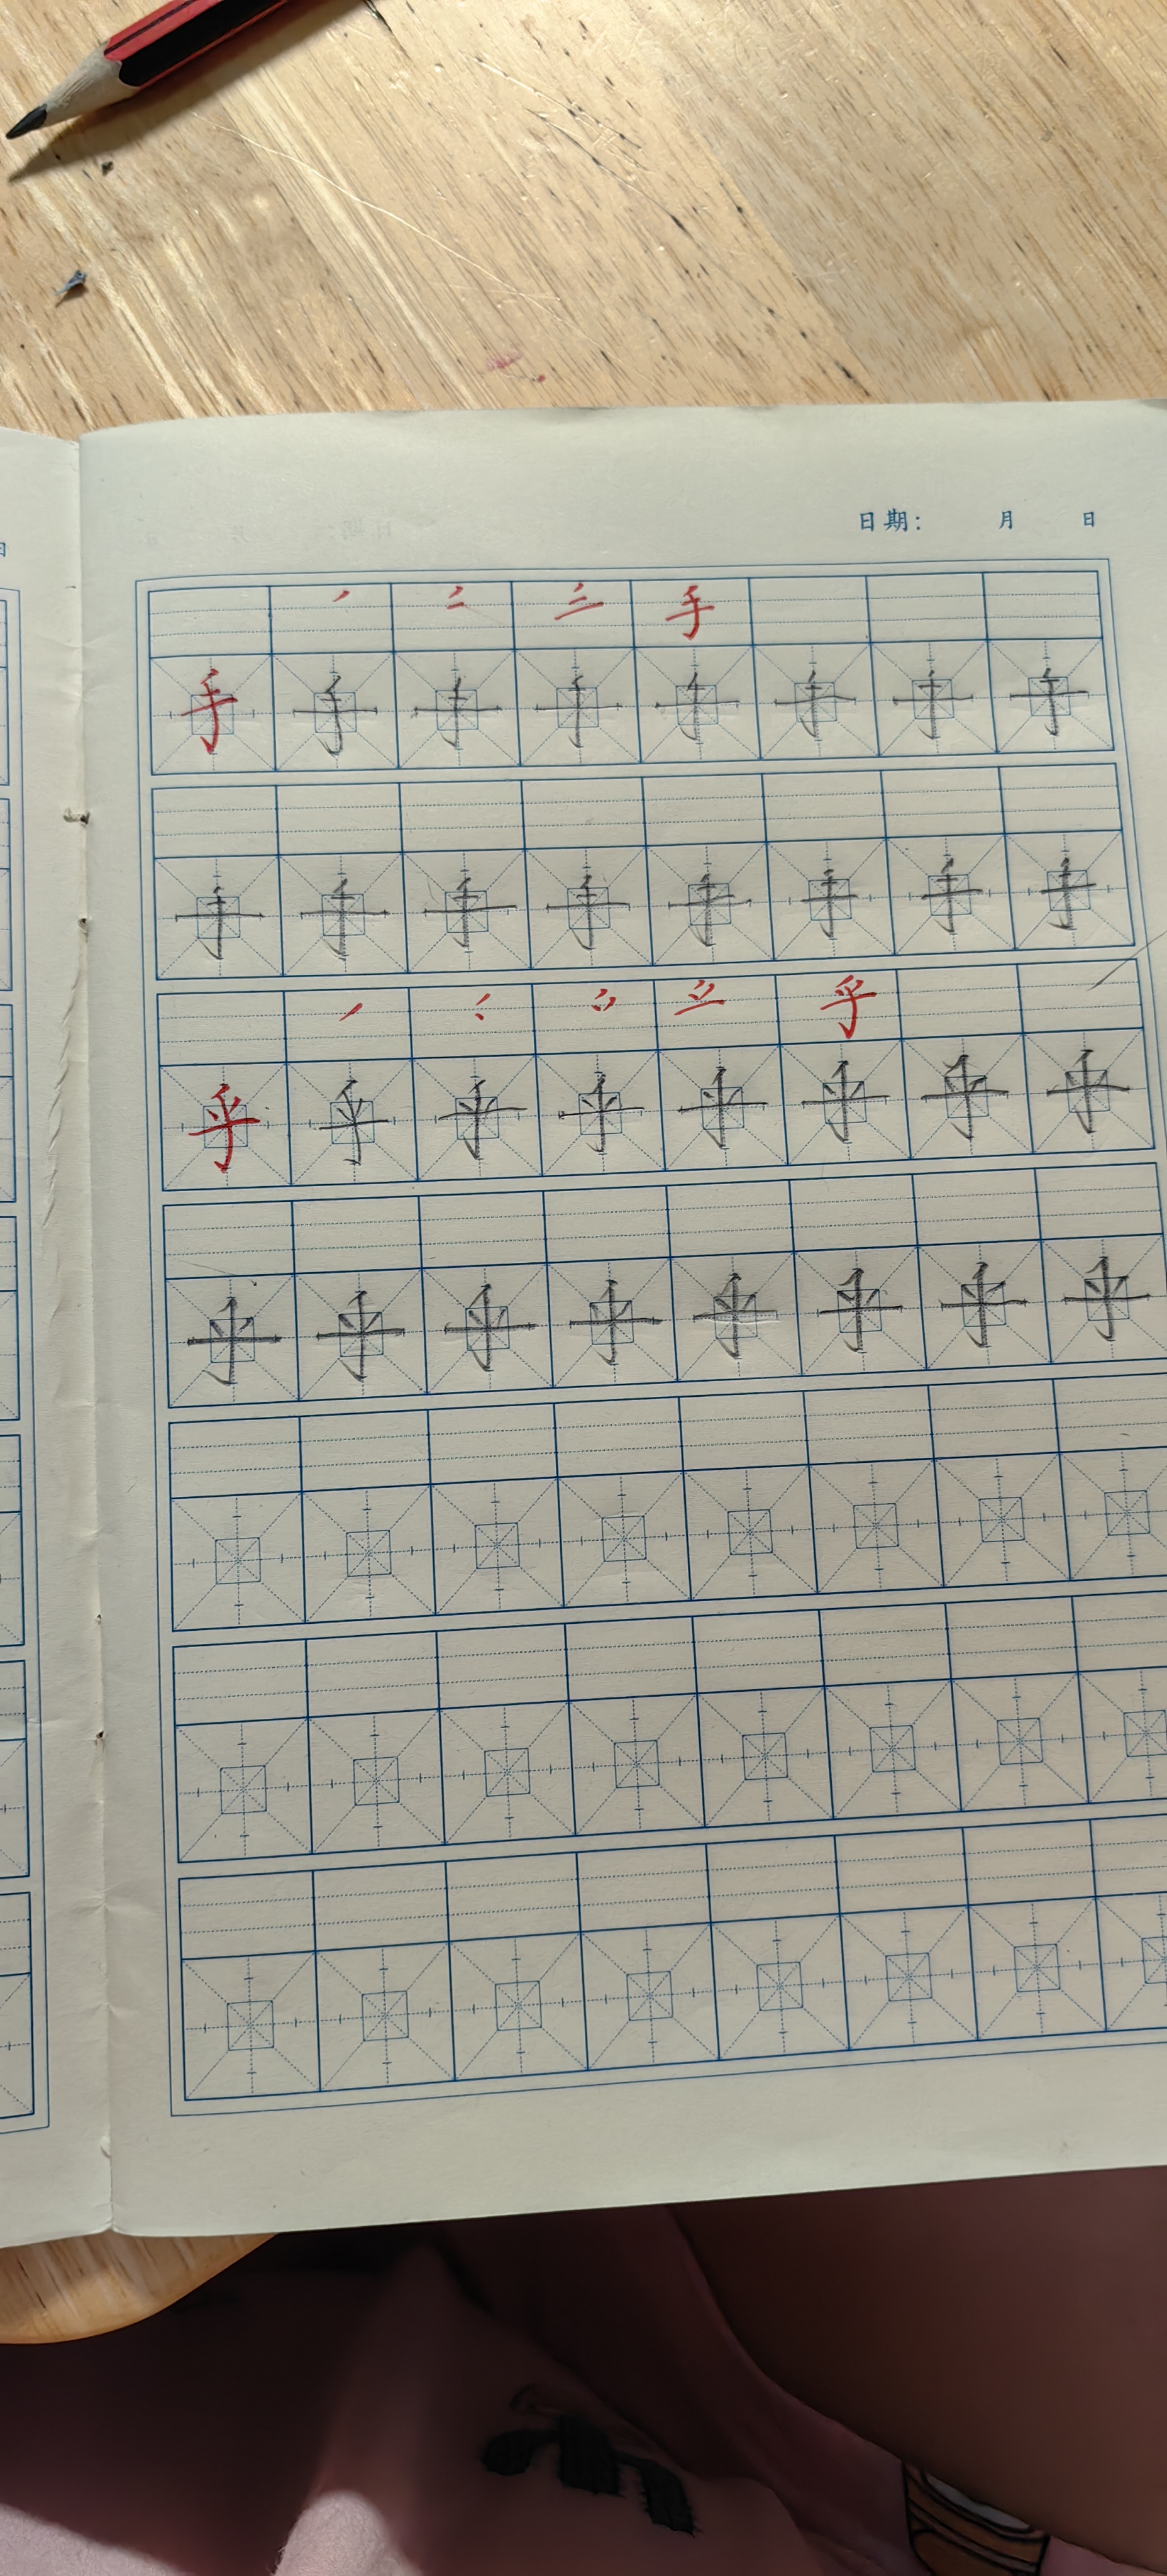 日期： 月 日
手
手 手 手 手 手 手 手 手
手 手 手 手 手 手 手 手
乎
乎 乎 乎 乎 乎 乎 乎 乎
乎 乎 乎 乎 乎 乎 乎 乎